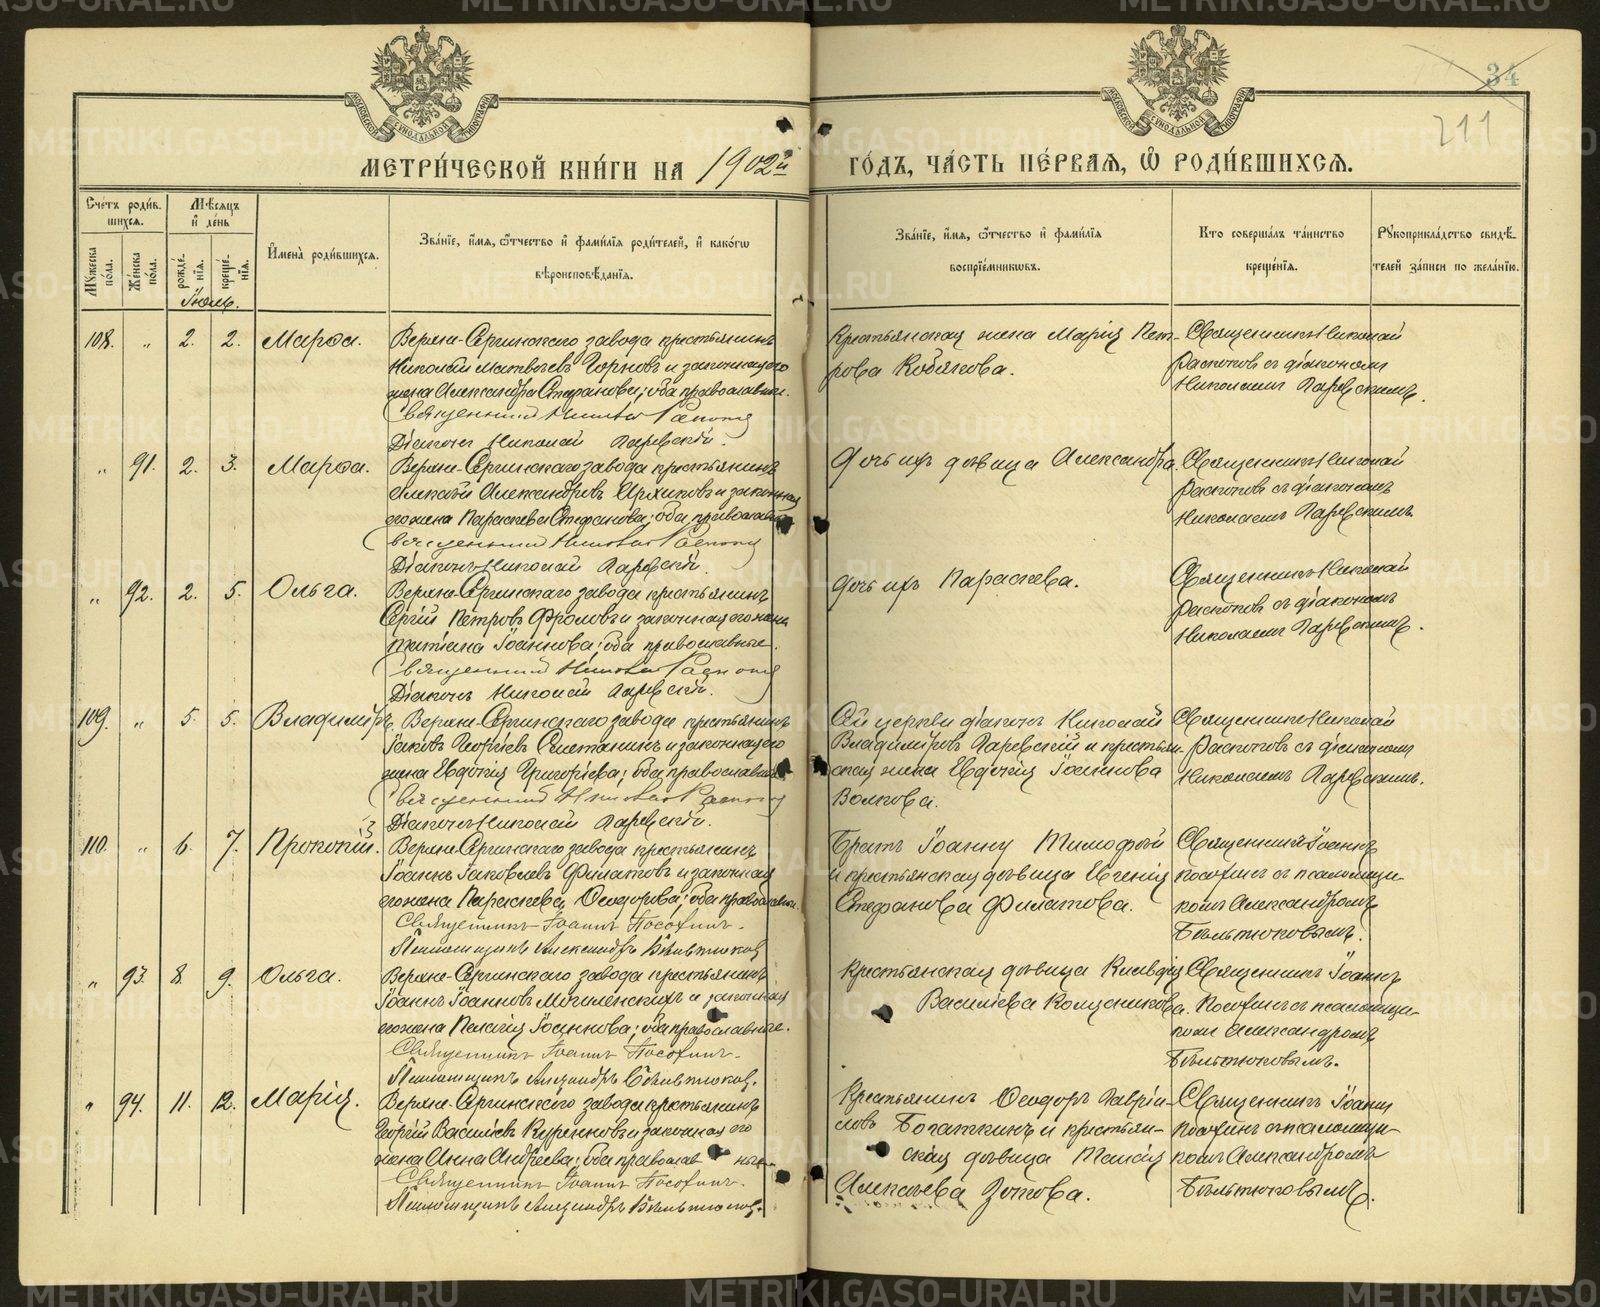 МЕТРИ́ЧЕСКОЙ КНИ́ГИ НА 1902й ГО́ДЪ, ЧА́СТЬ ПЕ́РВАЯ, Ѿ РОДИ́ВШИХСЯ.
34
211
МОСКОВСКОЙ СѴНОДАЛЬНОЙ ТИПОГРАФІИ
МОСКОВСКОЙ СѴНОДАЛЬНОЙ ТИПОГРАФІИ
Сче́тъ роди́в
шихся.
Мѣ́сяцъ
и де́нь
Му́жеска по́ла.
Же́нска по́ла.
рожде́нія.
креще́нія.
Имена̀ роди́вшихся.
Зва́ніе, и́мя, ѻ́тчество и фами́лія роди́телей, и како́гѡ
вѣроисповѣ́данія.
Зва́ніе, и́мя, ѻ́тчество и фами́лія
воспріе́мникѡвъ.
Кто соверша́лъ та́инство
креще́нія.
Рукоприкла́дство свидѣ́-
телей за́писи по жела́нію.
Іюль.
108. „ 2. 2. Марѳа.
Верхне-Сергинскаго завода крестьянинъ
Николай Матвѣевъ Горновъ и законная его
жена Александра Стефанова; оба православные.
Священникъ Николай Распоповъ
Діаконъ Николай Ларевскій.
Крестьянская жена Марія Пет-
рова Кобякова.
Священникъ Николай
Распоповъ съ діакономъ
Николаемъ Ларевскимъ.
„ 91. 2. 3. Марѳа.
Верхне-Сергинскаго завода крестьянинъ
Алексѣй Александровъ Архиповъ и законная
его жена Параскева Стефанова; оба православн
Священникъ Николай Распоповъ
Діаконъ Николай Ларевскій.
Дочь ихъ дѣвица Александра.
Священникъ Николай
Распоповъ съ діакономъ
Николаемъ Ларевскимъ.
„ 92. 2. 5. Ольга.
Верхне-Сергинскаго завода крестьянинъ
Сергій Петровъ Фроловъ и законная его жена
Татіана Іоаннова; оба православные.
Священникъ Николай Распоповъ
Діаконъ Николай Ларевскій.
Дочь ихъ Параскева.
Священникъ Николай
Распоповъ съ діакономъ
Николаемъ Ларевскимъ.
109. „ 5. 5. Владимиръ.
Верхне-Сергинскаго завода крестьянинъ
Іаковъ Георгіевъ Сметанинъ и законная его
жена Евдокія Григоріева; оба православные
Священникъ Николай Распоповъ
Діаконъ Николай Ларевскій.
Сей церкви діаконъ Николай
Владиміровъ Ларевскій и крестьян-
ская жена Евдокія Іоаннова
Волкова.
Священникъ Николай
Распоповъ съ діакономъ
Николаемъ Ларевскимъ.
110. „ 6. 7. Прокопій.
Верхне-Сергинскаго завода крестьянинъ
Іоаннъ Іаковлевъ Филатовъ и законная
его жена Параскева Ѳеодорова; оба православн.
Священникъ Іоаннъ Посохинъ.
Псаломщикъ Александръ Бѣльтюковъ
Братъ Іоанну Тимофей
и крестьянская дѣвица Евгенія
Стефанова Филатова.
Священникъ Іоаннъ
Посохинъ съ псаломщи-
комъ Александромъ
Бѣльтюковымъ.
„ 93. 8. 9. Ольга.
Верхне-Сергинскаго завода крестьянинъ
Іоаннъ Іоанновъ Могиленскихъ и законная
его жена Пелагія Іоаннова; оба православные.
Священникъ Іоаннъ Посохинъ.
Псаломщикъ Александръ Бѣльтюковъ.
Крестьянская дѣвица Клавдія
Василіева Колясникова.
Священникъ Іоаннъ
Посохинъ съ псаломщи-
комъ Александромъ
Бѣльтюковымъ.
„ 94. 11. 12. Марія.
Верхне-Сергинскаго завода крестьянинъ
Георгій Василіевъ Куренновъ и законная его
жена Анна Андреева; оба православ ные
Священникъ Іоаннъ Посохинъ.
Псаломщикъ Александръ Бѣльтюковъ.
Крестьянинъ Ѳеодоръ Гаврі-
ловъ Богаткинъ и крестьян-
ская дѣвица Таисія
Алексѣева Зотова.
Священникъ Іоаннъ
Посохинъ съ псаломщи-
комъ Александромъ
Бѣльтюковымъ.
METRIKI.GASO-URAL.RU